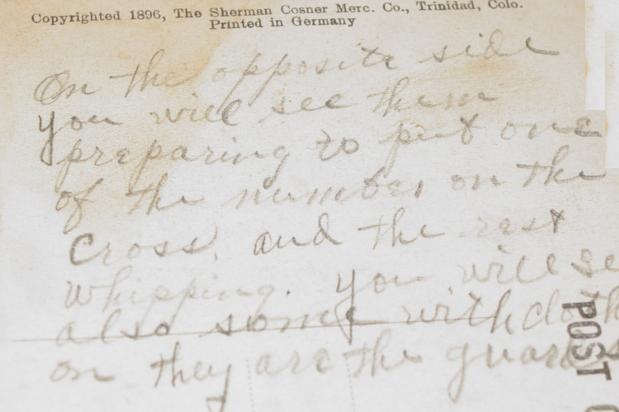 Copyrighted 1896, The Sherman Cosner Merc. Co., Trinidad, Colo.
Printed in Germany
On the opposite side
you will see them
preparing to put one
of the number on the
Cross, and the rest
whipping. you will se
also some with cloth
on they are the guards
POST